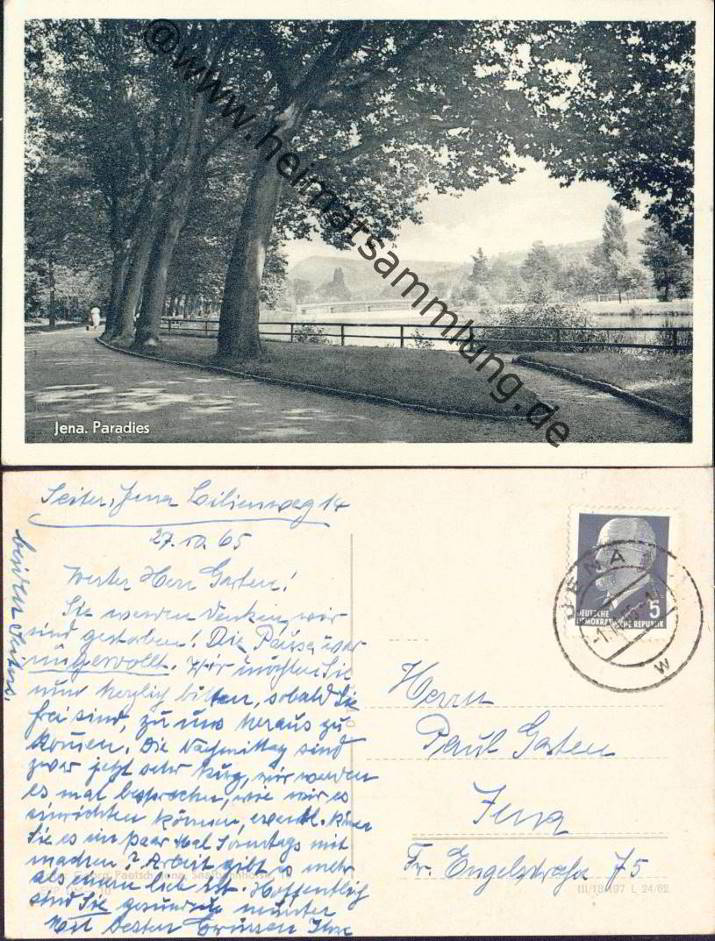 @www.heimatsammlung.de
Jena. Paradies
Seiter, Jena Lilienweg 14
27.10.65
Werter Herr Garten!
Sie werden denken, wir
sind gestorben! Die Pause war
ungewollt. Wir möchten Sie
nun herzlich bitten, sobald Sie
frei sind, zu uns heraus zu
kommen. Die Nachmittag sind
zwar jetzt sehr kurz, wir werden
es mal besprechen, wie wir es
einrichten können, eventl. können
Sie es ein paar Mal Sonntags mit
machen? Arbeit gibt es mehr
als einem lieb ist. Hoffentlich
sind Sie gesund u. munter
Mit besten Grüssen Ihre
beiden
JENA
W
DEUTSCHE
DEMOKRATISCHE REPUBLIK
5
Herrn
Paul Garten
Jena
Fr. Engelsstraße 75
III/18/197 L 24/62